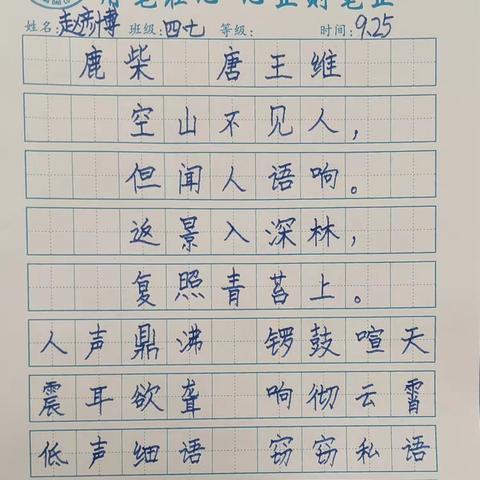 姓名:赵彦博 班级:四七 等级: 时间:9.25
鹿柴 唐王维
空山不见人，
但闻人语响。
返景入深林，
复照青苔上。
人声鼎沸 锣鼓喧天
震耳欲聋 响彻云霄
低声细语 窃窃私语